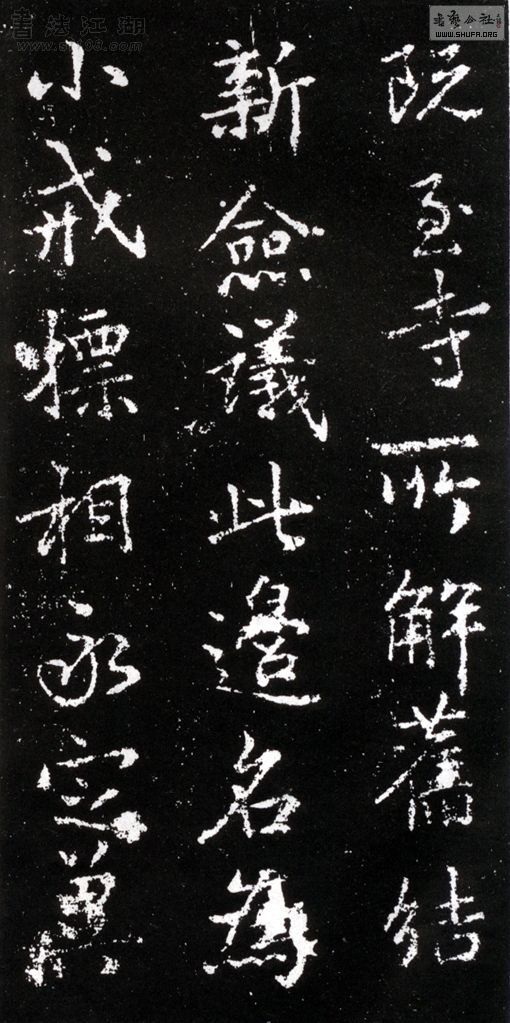 既至寺所解舊結
新僉議此邊名為
小戒標相永定冀
書法江湖
www.sf108.com
WWW.SHUFA.ORG